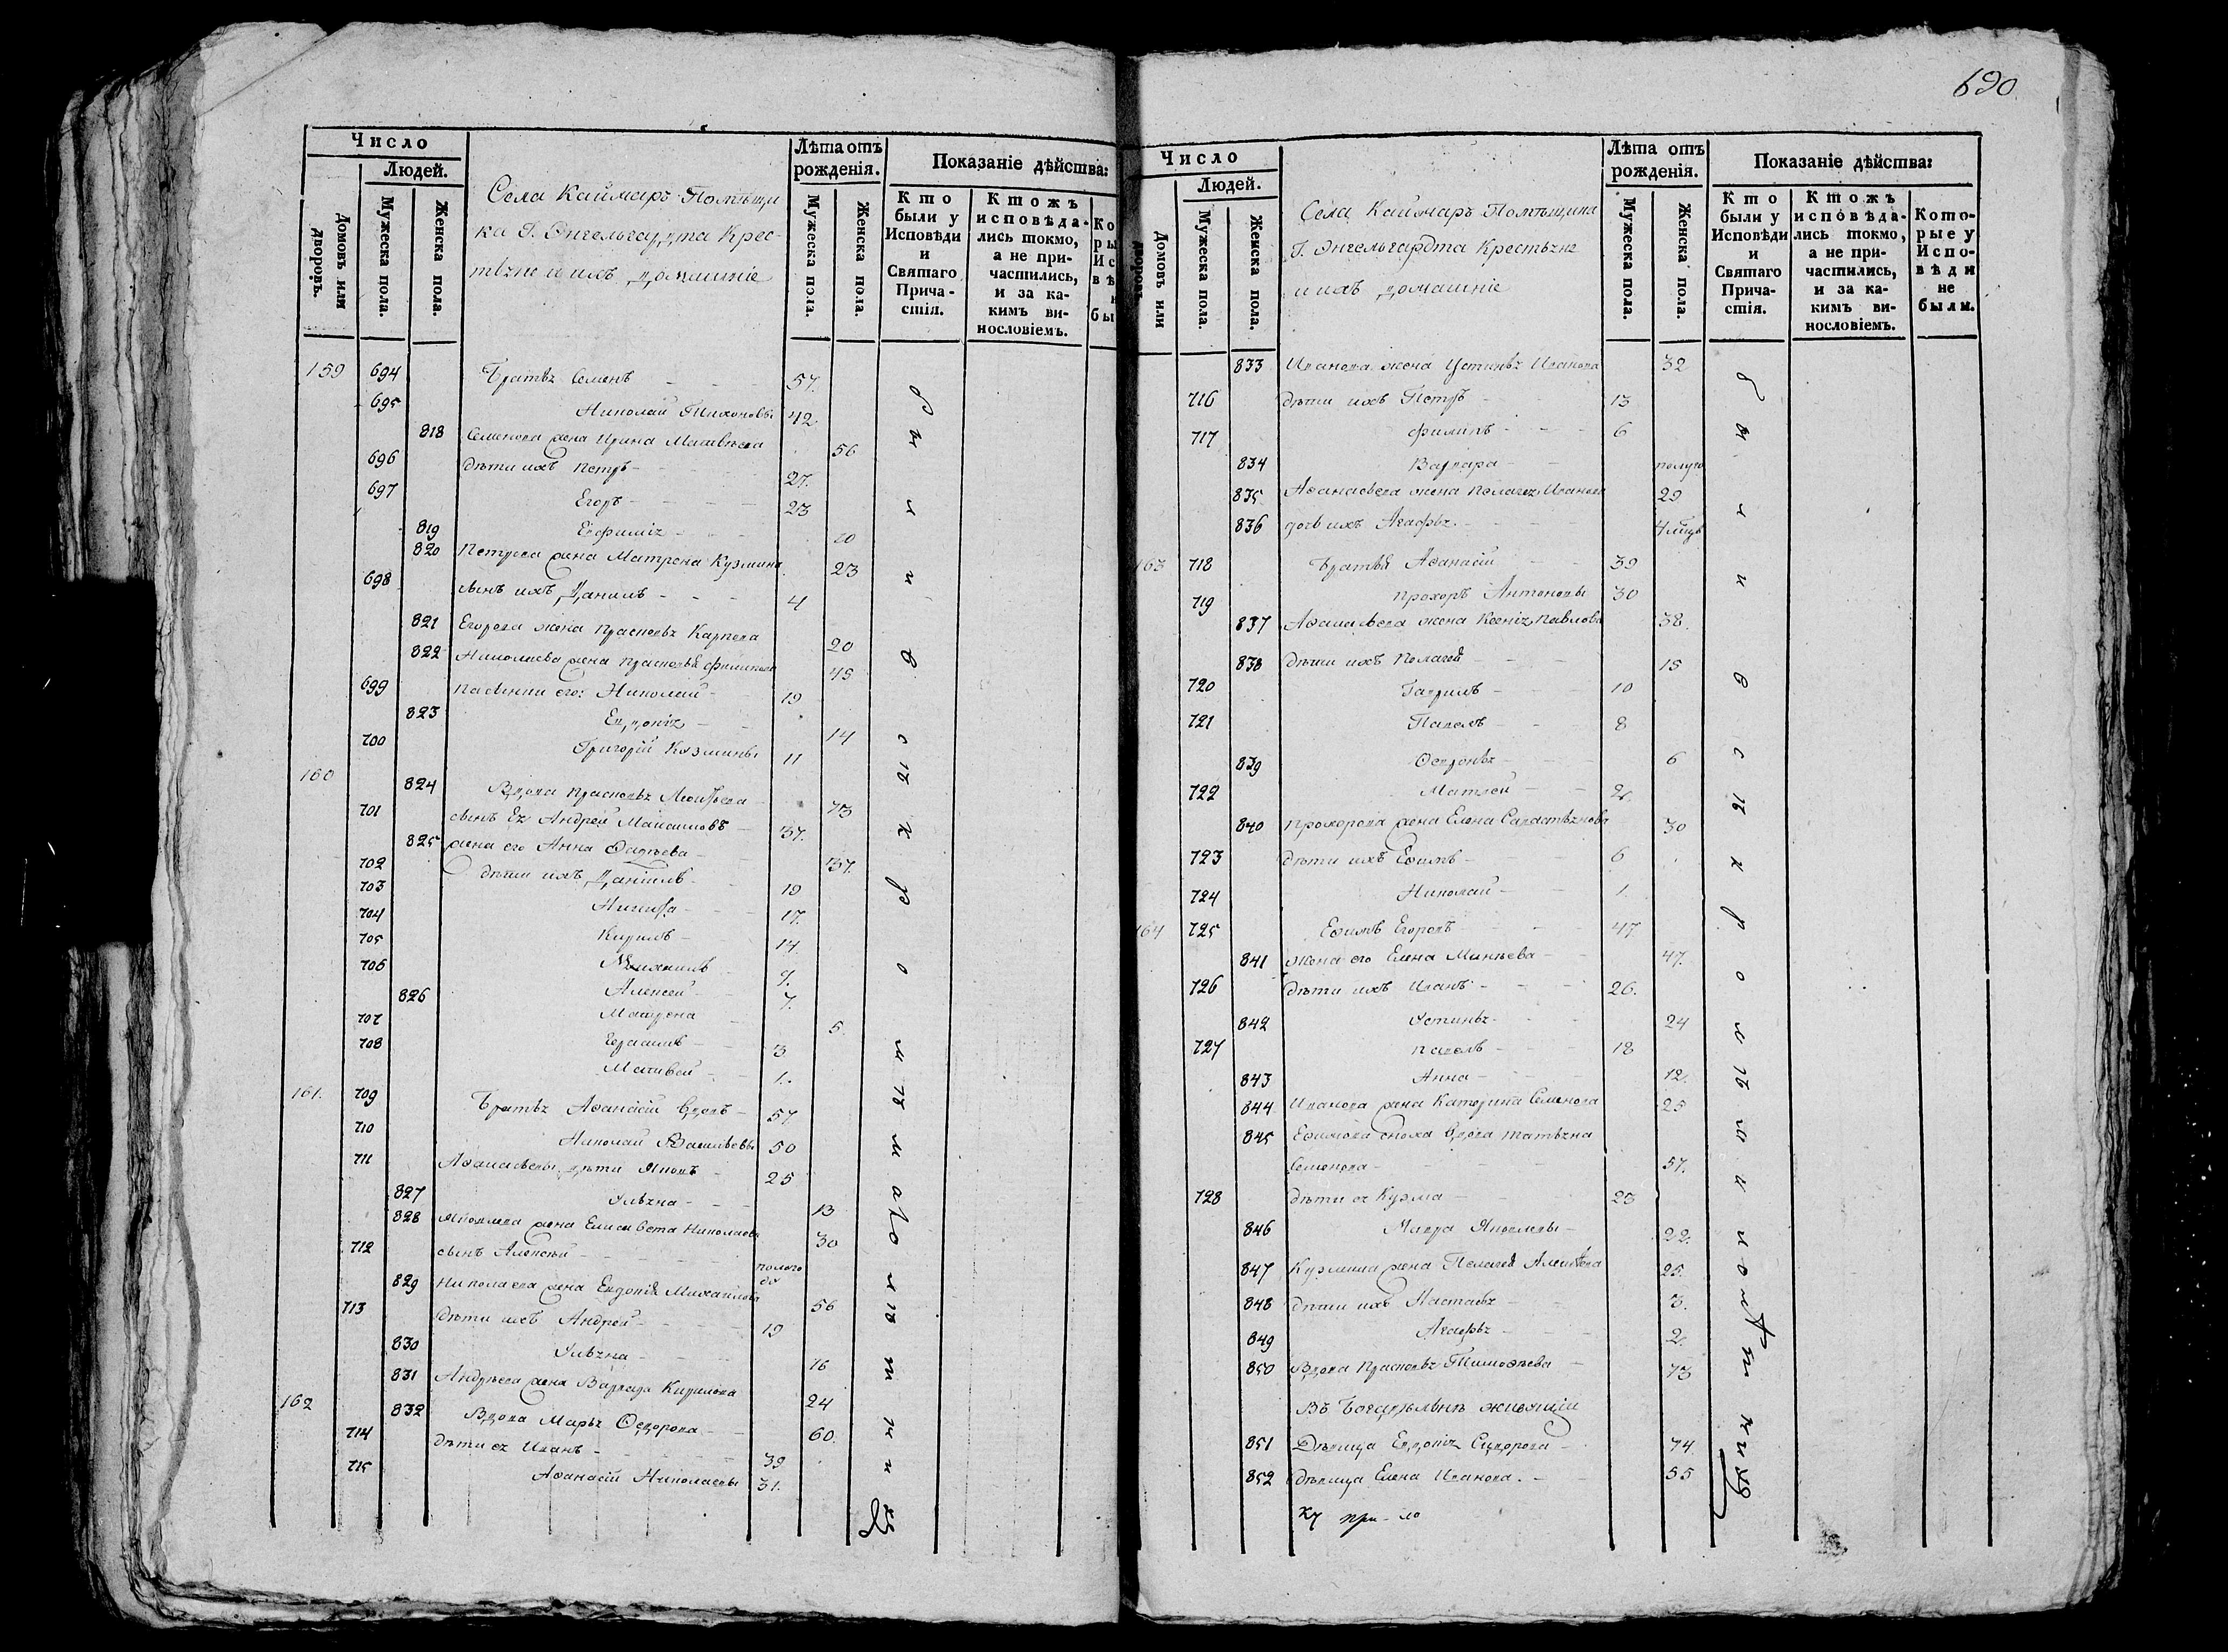 690
Число
Людей.
Домовъ или дворовъ.
Мужеска пола.
Женска пола.
Села Каймаръ Помѣщи
ка Г. Энгельгардта Крес-
тьяне и ихъ домашніе
Лѣта отъ рожденія.
Мужеска пола.
Женска пола.
Показаніе дѣйства:
Кто были у Исповѣди и Святаго Прича-стія.
Ктожъ исповѣда-лись токмо, а не при-частились, и за ка-кимъ ви-нословіемъ.
159 694 Братья Семенъ 57.
695 Николай Тихоновы 42
818 Семенова жена Ирина Матвѣева 56
696 дѣти ихъ Петръ 27.
697 Егоръ 23
819 Евфимія 20
820 Петрова жена Матрена Кузмина 23
698 сынъ ихъ Данилъ 4
821 Егорова жена Прасковья Карпова 20
822 Николаева жена Прасковья Филипова 45
699 Пасынки его: Николай 19
823 Евдокія 14
700 Григорій Козмины 11
160
824 Вдова Прасковья 73
701 сынъ Ея Андрей 37.
825 жена его Анна 37.
702 дѣти ихъ Даніилъ 19
703 Никита 17.
704 Кирилъ 14.
705 Михаилъ 9.
706 Алексей 7.
826 Матрена 5.
707 Герасимъ 3
708 Матвей 1.
161. 709 Братья Афанасій вдовъ 57
710 Николай Васильевы 50
711 Афанасьевы дѣти Яковъ 25
827 Ульяна 13
828 Яковлева жена Елисавета Николаева 30
712 сынъ Алексей полгода
829 Николаева жена Евдокія Михаилова 56
713 дѣти ихъ Андрей 19
830 Ульяна 16
831 Андреева жена Варвара Кирилова 24
162 832 Вдова Марья Ѳедорова 60.
714 дѣти ея Иванъ 39
715 Афанасій Николаевы 31.
Число
Людей.
Домовъ или дворовъ.
Мужеска пола.
Женска пола.
Села Каймаръ Помѣщика
Г. Энгельгардта Крестьяне
и ихъ домашніе
Лѣта отъ рожденія.
Мужеска пола.
Женска пола.
Показаніе дѣйства:
Кто были у Исповѣди и Святаго Прича-стія.
Ктожъ исповѣда-лись токмо, а не при-частились, и за ка-кимъ ви-нословіемъ.
Кото-рые у Испо-вѣди не были.
833 Иванова жена Устинья Иванова 32
716 дѣти ихъ Петръ 13
717 Филипъ 6
834 Варвара
835 Афанасьева жена Пелагея Иванова 29
836 дочь ихъ Агафья
163 718 Братья Афанасій 39
719 Прохоръ Антоновы 30
837 Афанасьева жена Ксенія Павлова 38.
838 дѣти ихъ Пелагея 15
720 Гаврилъ 10
721 Павелъ 8
839 Ѳевронья 6
722 Матвей 2.
840 Прохорова жена Елена Савастьянова 30
723 дѣти ихъ Ефимъ 6
724 Николай 1.
164 725 Ефимъ Егоровъ 47
841 жена его Елена Минѣева 47.
726 дѣти ихъ Иванъ 26.
842 Устинья 24
727 Павелъ 18
843 Анна 12.
844 Иванова жена Катерина Семенова 25
845 Ефимова сноха вдова Татьяна
Семенова 57.
728 дѣти ея Кузма 23
846 Мавра Яковлевы 22.
847 Кузмина жена Пелагея 25.
848 дѣти ихъ Настасья 3.
849 Агафья 2.
850 Вдова Прасковья Тимофѣева 73
Въ Богадѣльнѣ живущіи
851 Дѣвица Евдокія Сидорова 74.
852 дѣвица Елена Иванова. 55